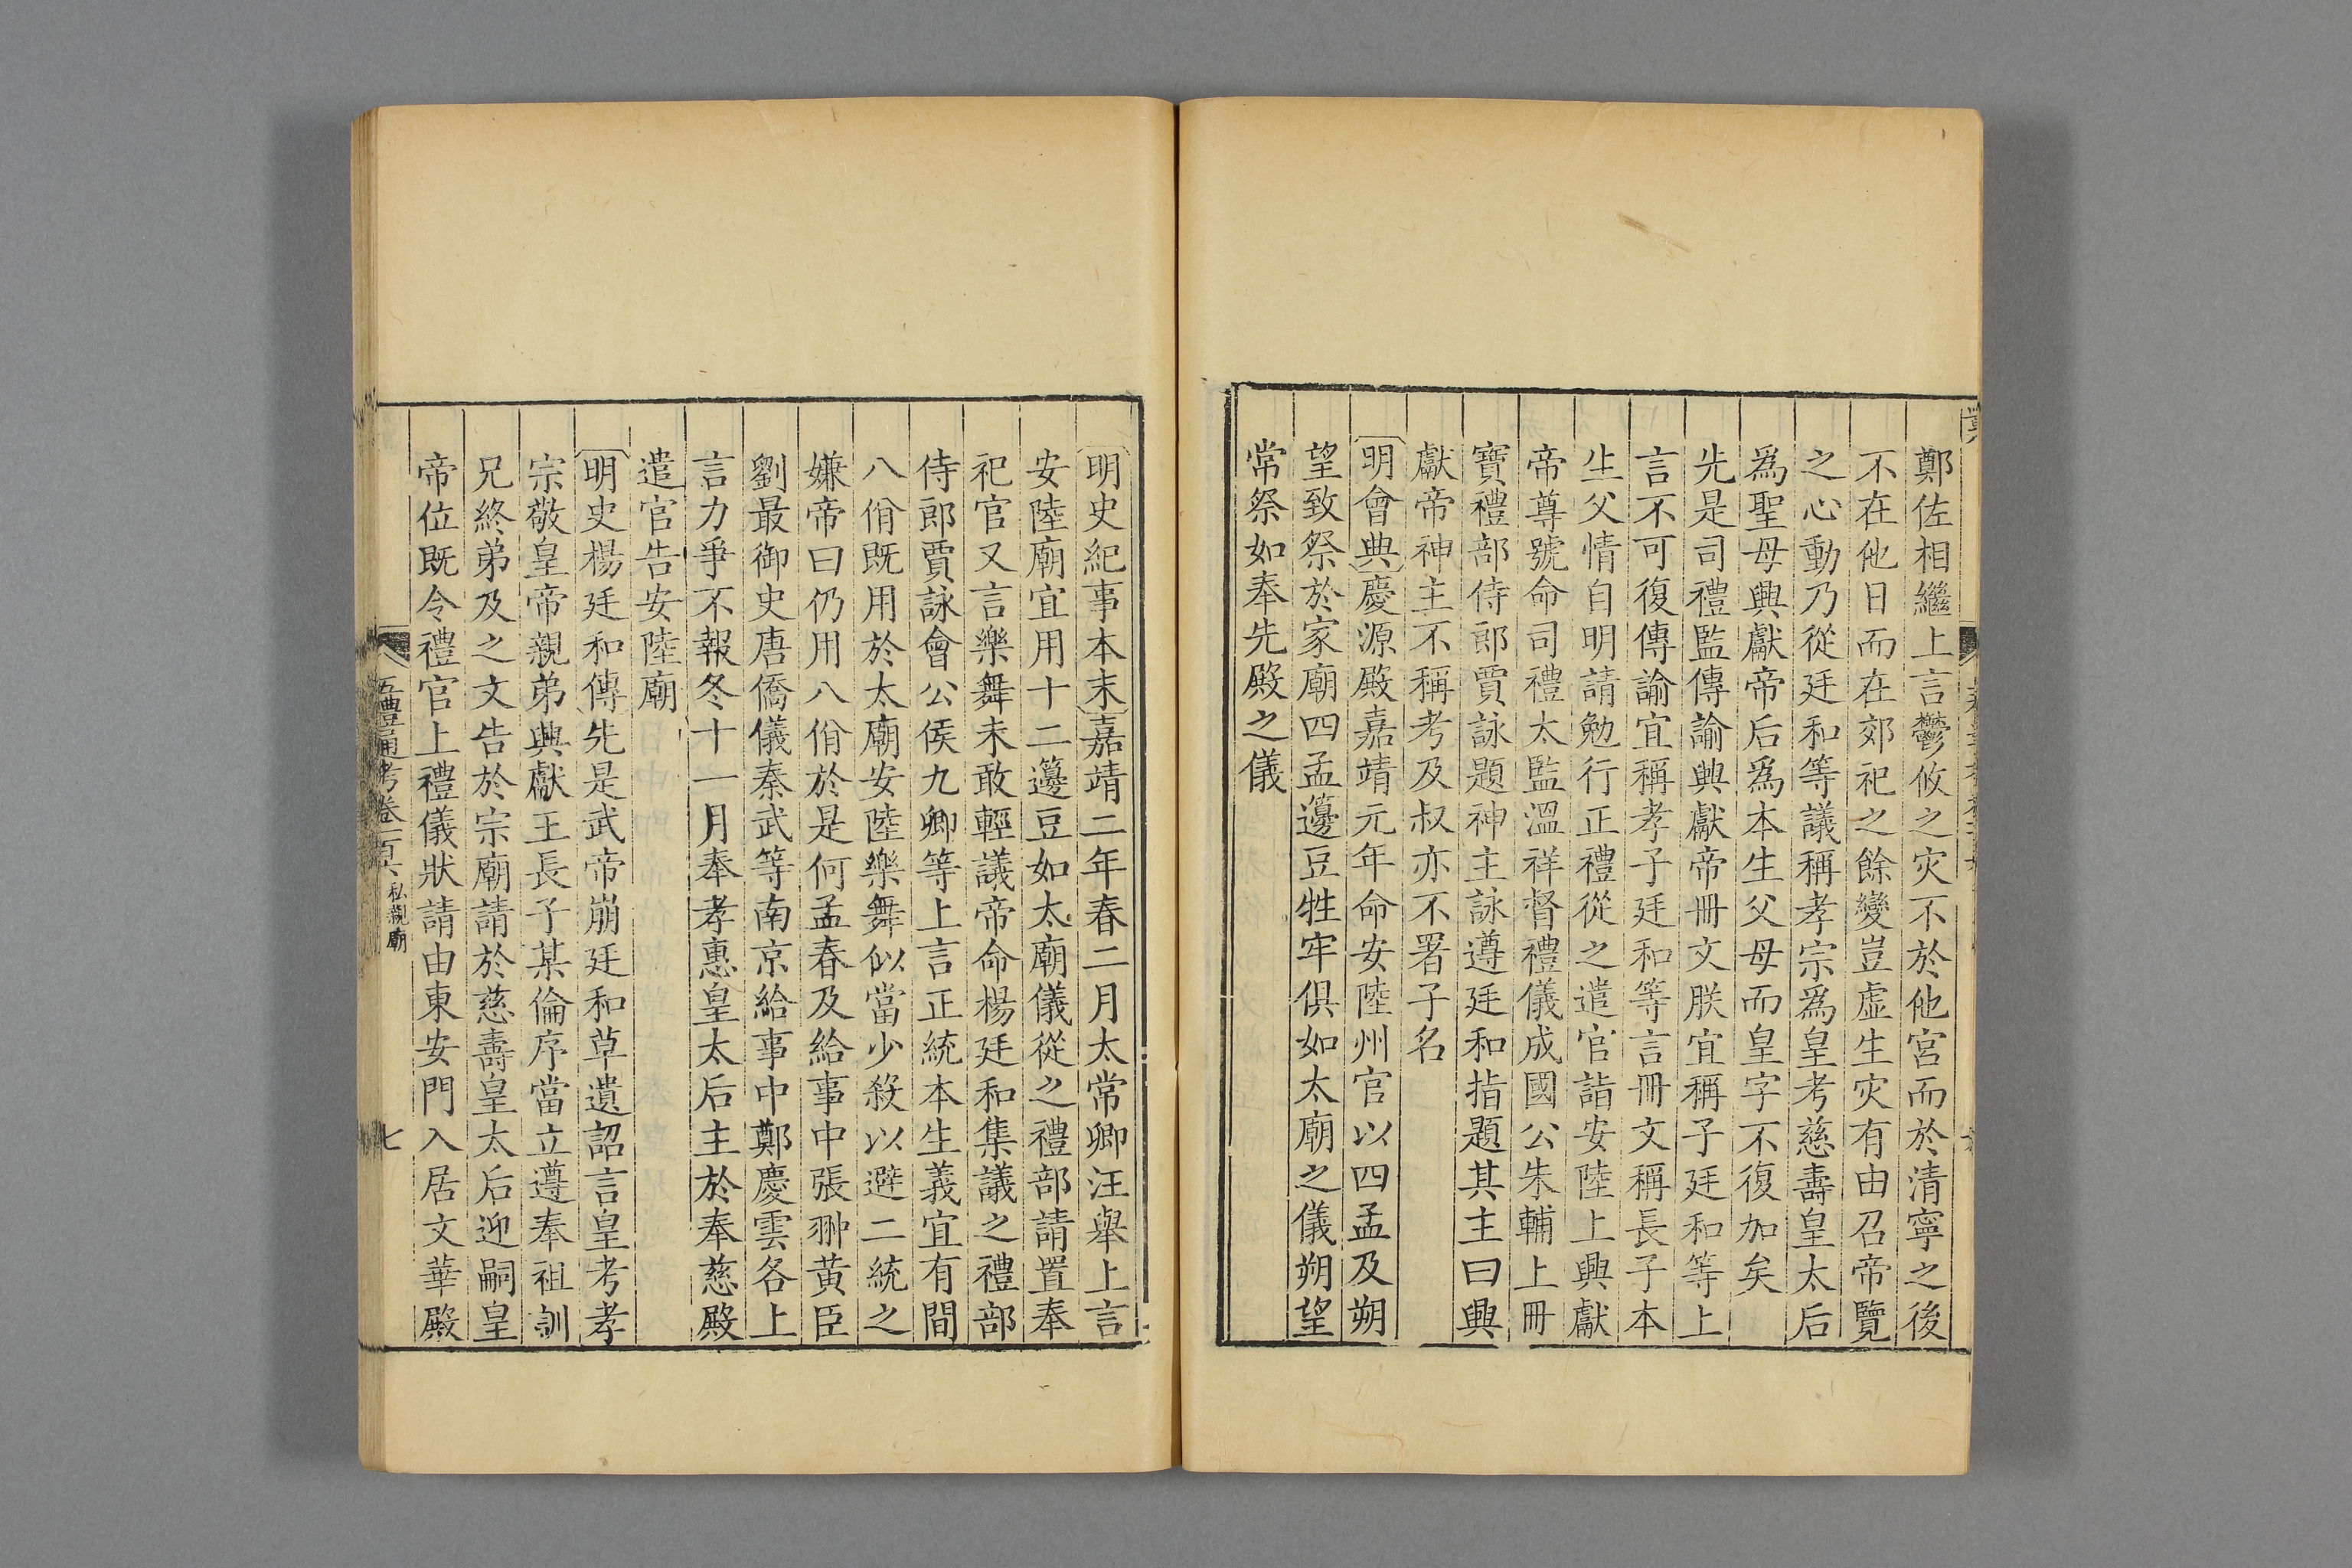 鄭佐相繼上言鬱攸之灾不於他宮而於清寧之後
不在他日而在郊祀之餘變豈虛生灾有由召帝覽
之心動乃從廷和等議稱孝宗爲皇考慈壽皇太后
爲聖母興獻帝后爲本生父母而皇字不復加矣
先是司禮監傳諭興獻帝冊文朕宜稱子廷和等上
言不可復傳諭宜稱孝子廷和等言冊文稱長子本
生父情自明請勉行正禮從之遣官詣安陸上興獻
帝尊號命司禮太監溫祥督禮儀成國公朱輔上冊
寶禮部侍郎賈詠題神主詠遵廷和指題其主曰興
獻帝神主不稱考及叔亦不署子名
明會典慶源殿嘉靖元年命安陸州官以四孟及朔
望致祭於家廟四孟籩豆牲牢俱如太廟之儀朔望
常祭如奉先殿之儀
明史紀事本末嘉靖二年春二月太常卿汪舉上言
安陸廟宜用十二籩豆如太廟儀從之禮部請置奉
祀官又言樂舞未敢輕議帝命楊廷和集議之禮部
侍郎賈詠會公侯九卿等上言正統本生義宜有間
八佾既用於太廟安陸樂舞似當少殺以避二統之
嫌帝曰仍用八佾於是何孟春及給事中張翀黃臣
劉最御史唐僑儀秦武等南京給事中鄭慶雲各上
言力爭不報冬十一月奉孝惠皇太后主於奉慈殿
遣官告安陸廟
明史楊廷和傳先是武帝崩廷和草遺詔言皇考孝
宗敬皇帝親弟興獻王長子某倫序當立遵奉祖訓
兄終弟及之文告於宗廟請於慈壽皇太后迎嗣皇
帝位既令禮官上禮儀狀請由東安門入居文華殿
五禮通考卷一百六 私親廟 七